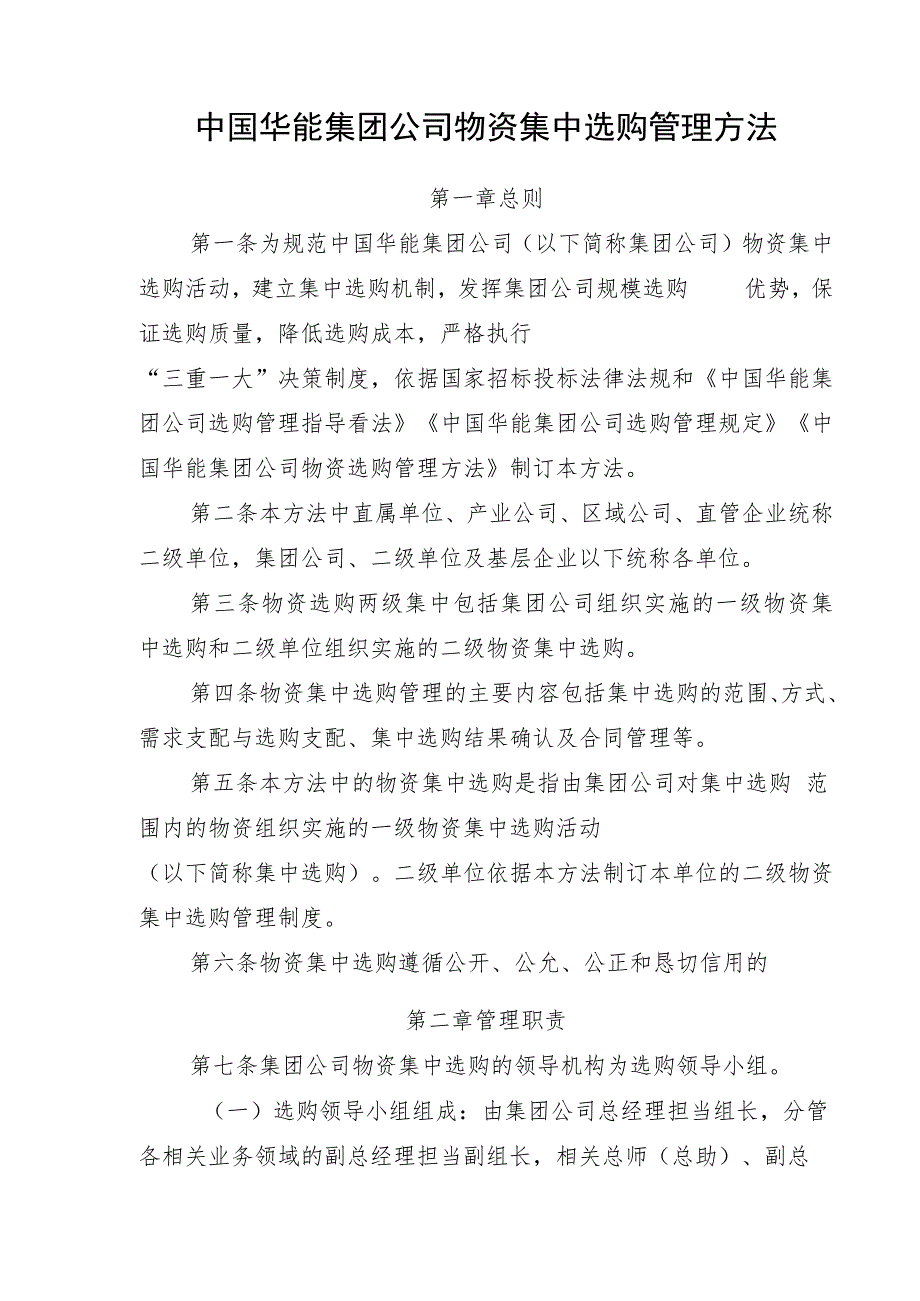 中国华能集团公司物资集中选购管理方法
第一章总则
第一条为规范中国华能集团公司（以下简称集团公司）物资集中
选购活动，建立集中选购机制，发挥集团公司规模选购 优势，保
证选购质量，降低选购成本，严格执行
“三重一大”决策制度，依据国家招标投标法律法规和《中国华能集
团公司选购管理指导看法》《中国华能集团公司选购管理规定》《中
国华能集团公司物资选购管理方法》制订本方法。
第二条本方法中直属单位、产业公司、区域公司、直管企业统称
二级单位，集团公司、二级单位及基层企业以下统称各单位。
第三条物资选购两级集中包括集团公司组织实施的一级物资集
中选购和二级单位组织实施的二级物资集中选购。
第四条物资集中选购管理的主要内容包括集中选购的范围、方式、
需求支配与选购支配、集中选购结果确认及合同管理等。
第五条本方法中的物资集中选购是指由集团公司对集中选购 范
围内的物资组织实施的一级物资集中选购活动
（以下简称集中选购）。二级单位依据本方法制订本单位的二级物资
集中选购管理制度。
第六条物资集中选购遵循公开、公允、公正和恳切信用的
第二章管理职责
第七条集团公司物资集中选购的领导机构为选购领导小组。
（一）选购领导小组组成：由集团公司总经理担当组长，分管
各相关业务领域的副总经理担当副组长，相关总师（总助）、副总